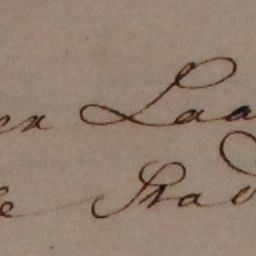 en Laa
e Stad